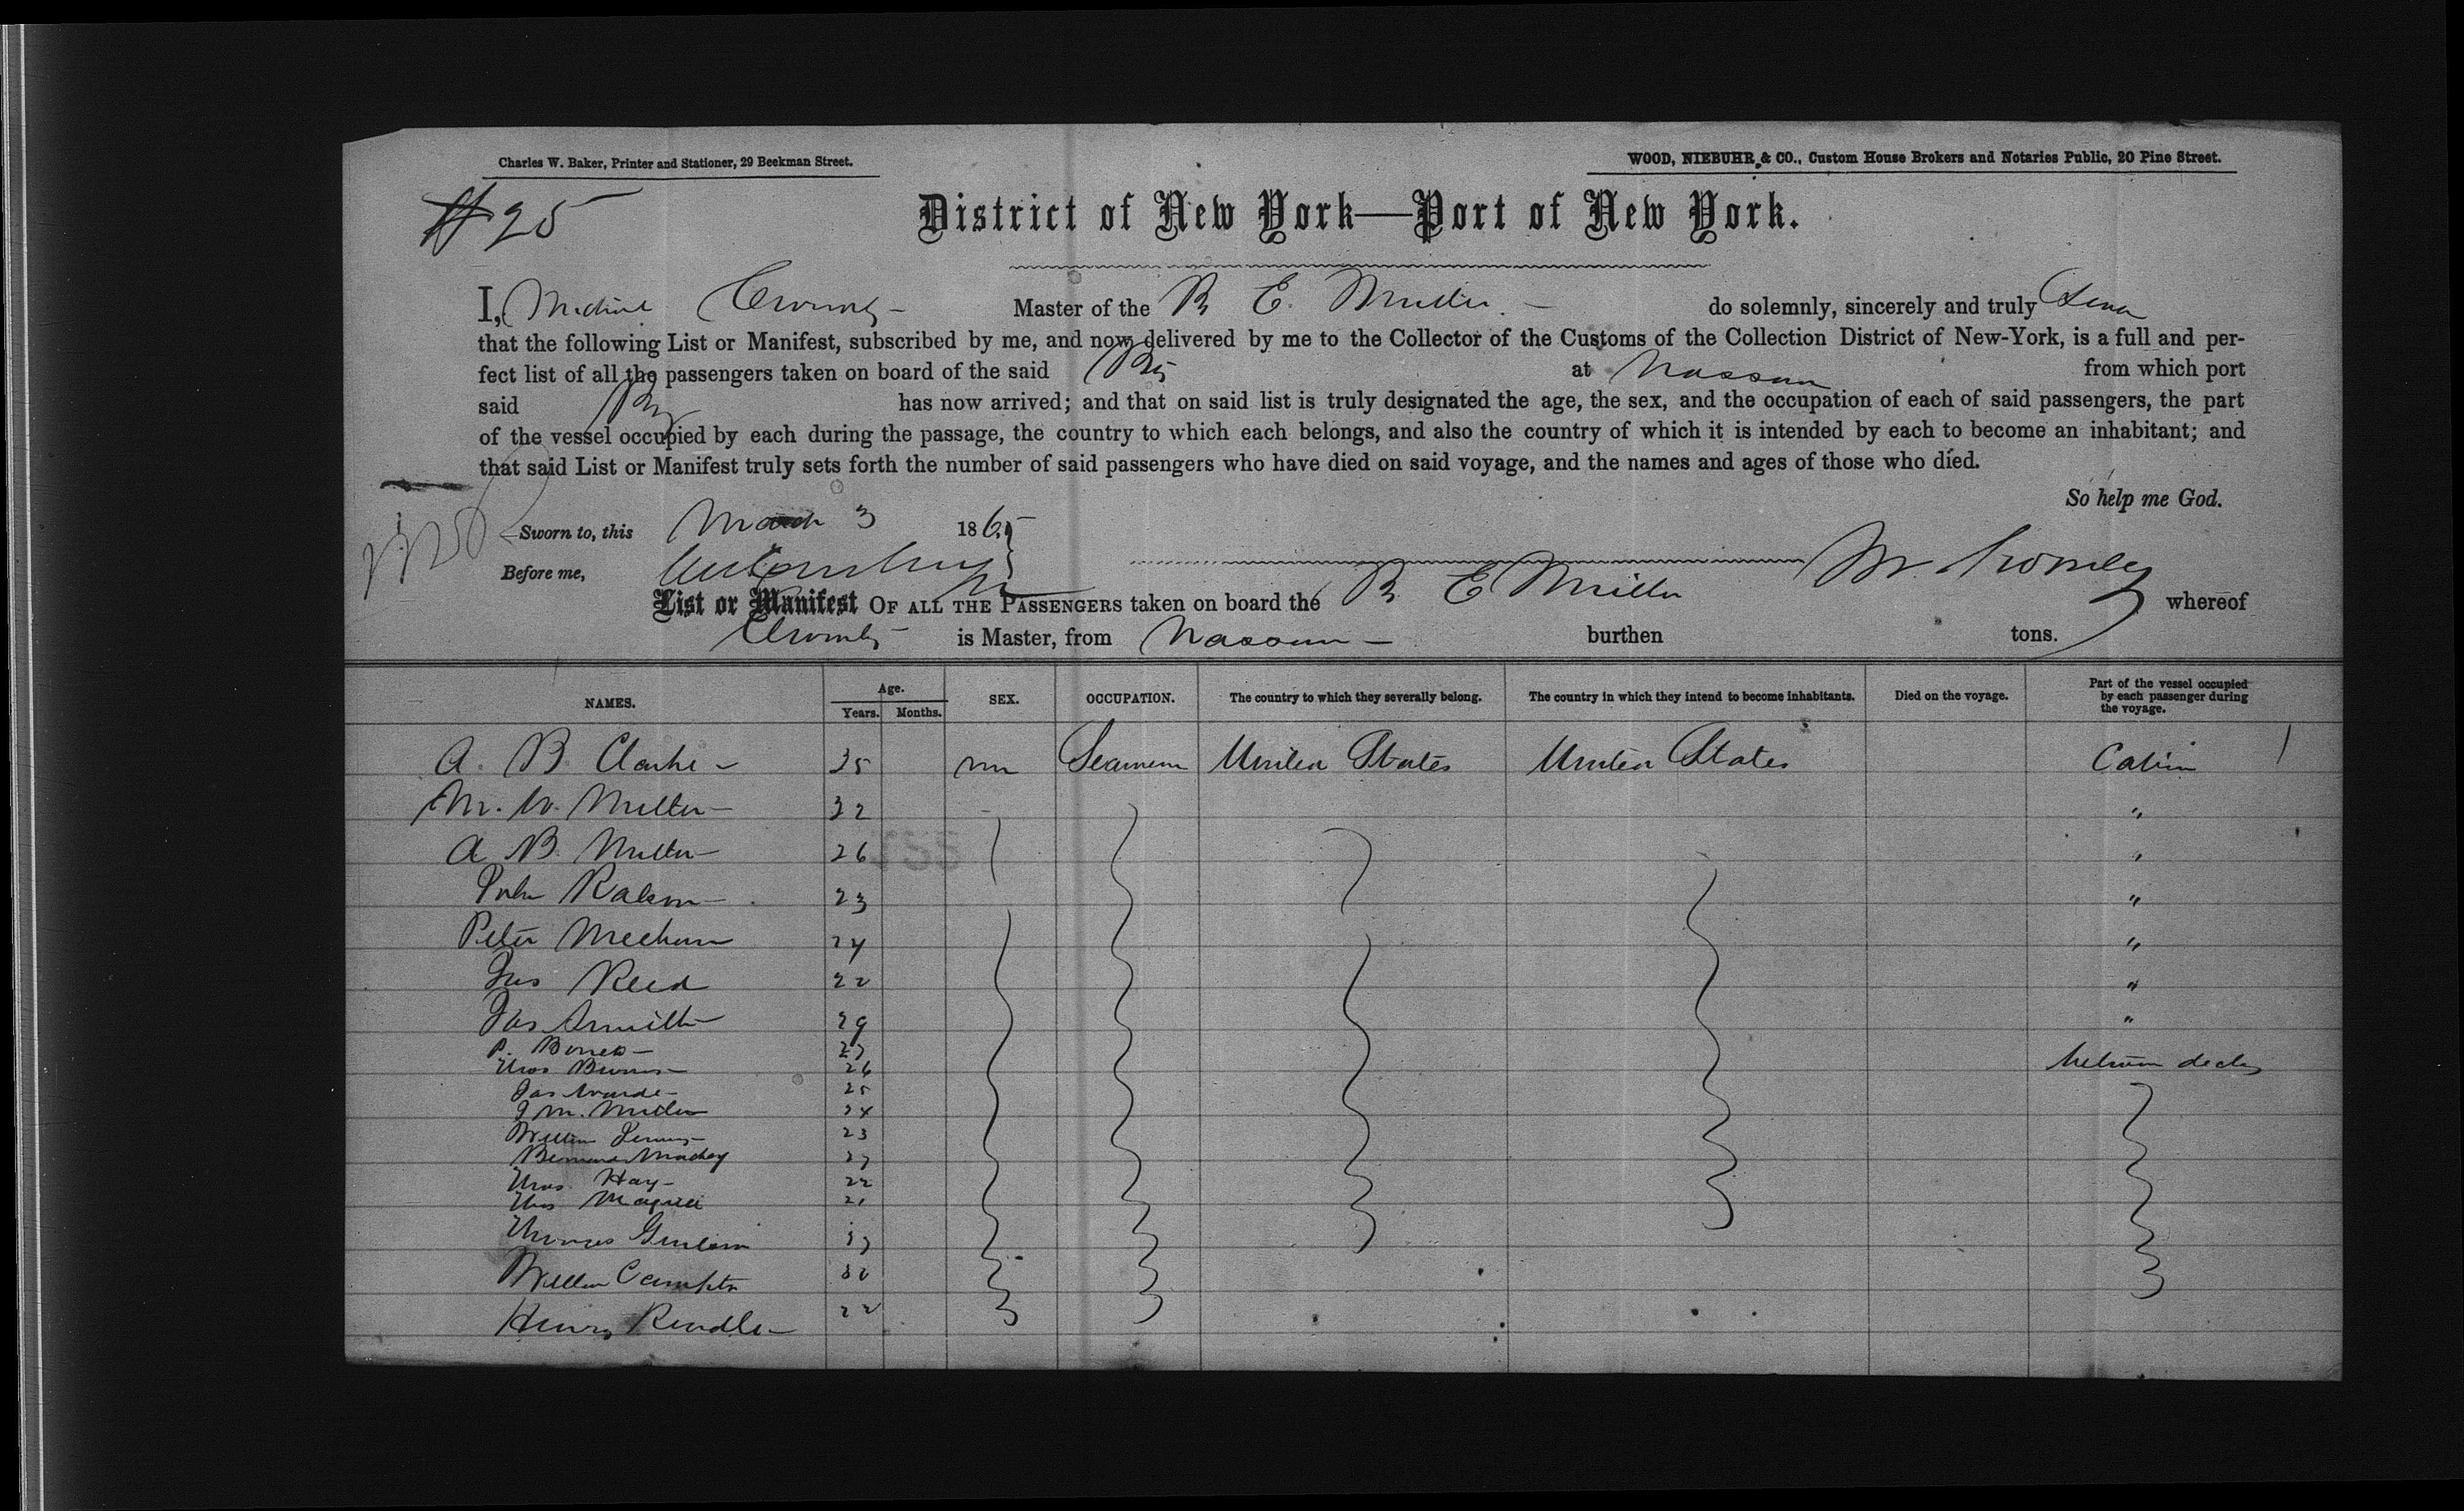 Charles W. Baker, Printer and Stationer, 29 Beekman Street.
WOOD, NIEBUHR & CO., Custom House Brokers and Notaries Public, 20 Pine Street.
# 25
District of New York—Port of New York.
I, Master of the B E. Miller do solemnly, sincerely and truly
that the following List or Manifest, subscribed by me, and now delivered by me to the Collector of the Customs of the Collection District of New-York, is a full and per-
fect list of all the passengers taken on board of the said Brig at Nassau from which port
said Brig has now arrived; and that on said list is truly designated the age, the sex, and the occupation of each of said passengers, the part
of the vessel occupied by each during the passage, the country to which each belongs, and also the country of which it is intended by each to become an inhabitant; and
that said List or Manifest truly sets forth the number of said passengers who have died on said voyage, and the names and ages of those who died.
So help me God.
Sworn to, this March 3 1865
Before me,
List or Manifest OF ALL THE PASSENGERS taken on board the B E Miller whereof
is Master, from Nassau burthen tons.
NAMES. Age. Years. Months. SEX. OCCUPATION. The country to which they severally belong. The country in which they intend to become inhabitants. Died on the voyage. Part of the vessel occupied by each passenger during the voyage.
A. B. Clarke 35 m Seaman United States United States Cabin
M. W. Miller 32 "
A B. Miller 26 "
John 23 "
Peter 24 "
Jas Reed 22 "
Jas 29 "
P. 27
Thos Burns 26 between decks
Jas 25
J M. Miller 24
William 23
Bernard Mackey 27
Thos. Hay 22
Thos 21
Thomas
William
Henry 22